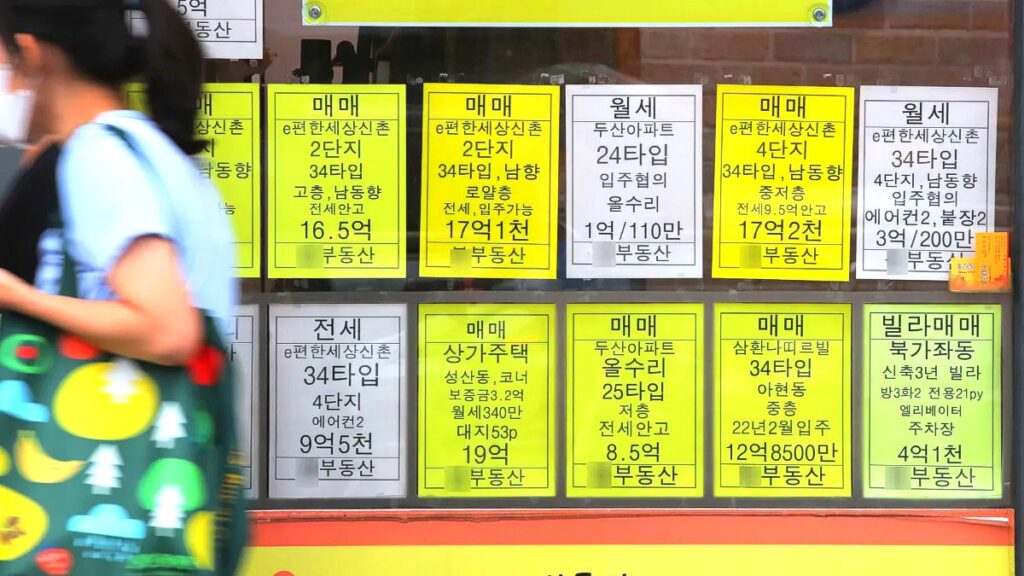 5억
부동산
매
세상신촌
남동향
능
부동산
매매
e편한세상신촌
2단지
34타입
고층,남동향
전세안고
16.5억
부동산
매매
e편한세상신촌
2단지
34타입,남향
로얄층
전세,입주가능
17억1천
부동산
월세
두산아파트
24타입
입주협의
올수리
1억/110만
부동산
매매
e편한세상신촌
4단지
34타입,남동향
중저층
전세9.5억안고
17억2천
부동산
월세
e편한세상신촌
34타입
4단지,남동향
입주협의
에어컨2, 붙장2
3억/200만
부동산
전세
e편한세상신촌
34타입
4단지
에어컨2
9억5천
부동산
매매
상가주택
성산동,코너
보증금3.2억
월세340만
대지53p
19억
부동산
매매
두산아파트
올수리
25타입
저층
전세안고
8.5억
부동산
매매
삼환나띠르빌
34타입
아현동
중층
22년2월입주
12억8500만
부동산
빌라매매
북가좌동
신축3년 빌라
방3화2 전용21py
엘리베이터
주차장
4억1천
부동산